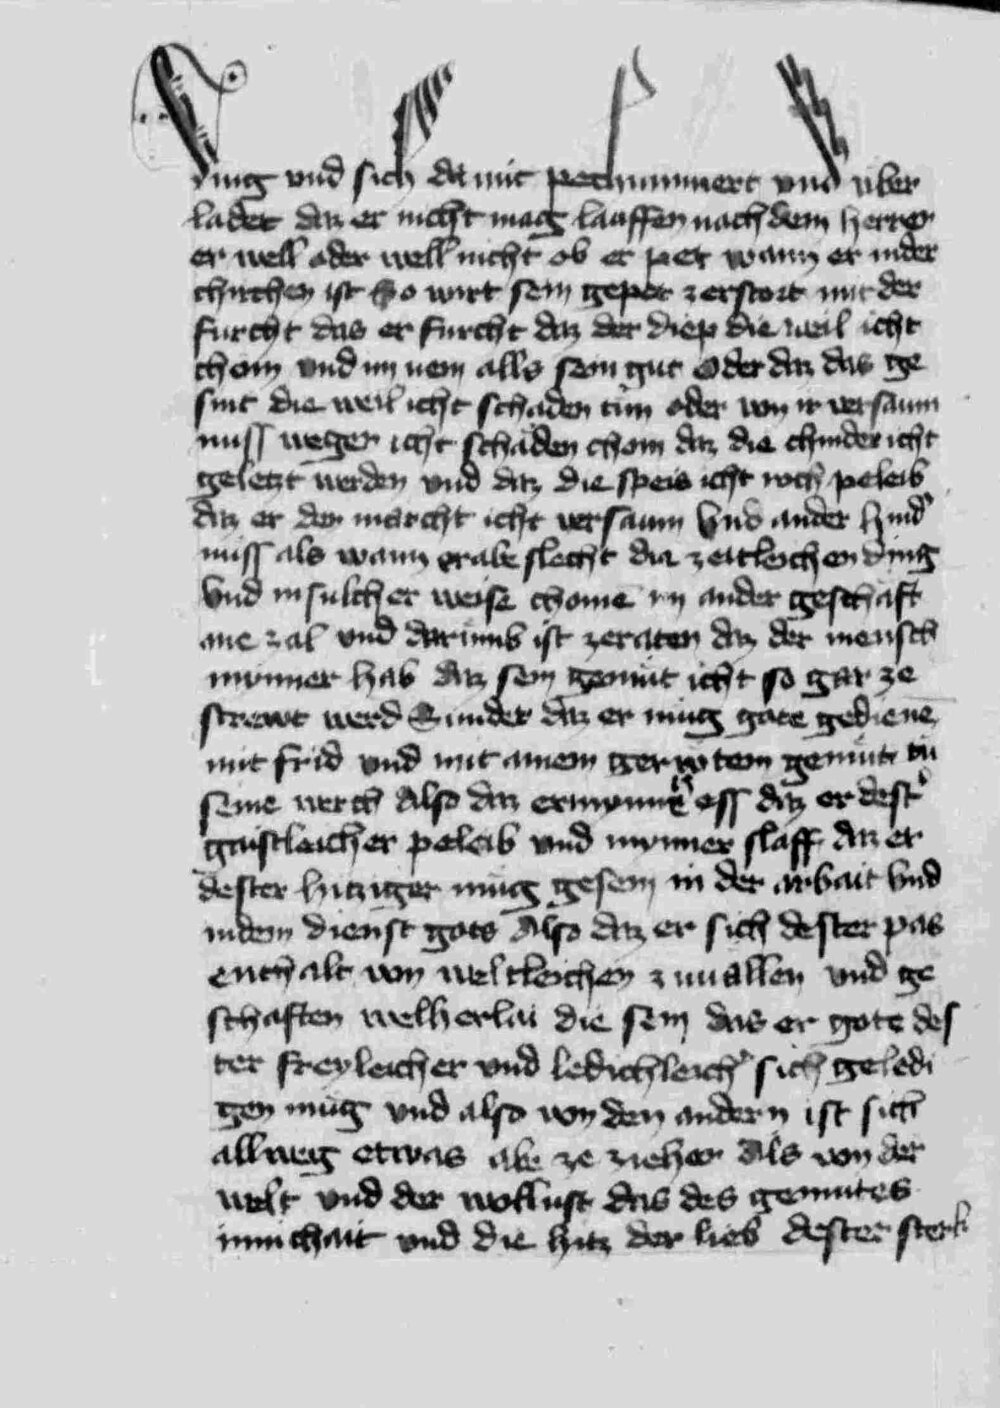 ding und sich da mit pechummert und uber
ladet daz er nicht mag lauffen nach dem herren
er well oder well nicht ob er pet wann er in der
chirchen ist So wirt sein gepet zerstort mit der
furcht das er furcht daz der diep die weil icht
chom und im nem alls sein gut Oder daz das ge
sint die weil icht schaden tun oder von ir versaum
nuss wegen icht schaden chom daz die chinder icht
geletzt werden und daz die speis icht roch peleib
daz er den marcht icht versaum Und ander hind'
nuss als wann er abe slecht die zeitleichen ding
Und in sulcher weise chome im ander geschaft
ane zal und darumb ist zeraten daz der mensch
mynner hab daz sein gemut icht so gar ze
strewt werd Sunder daz er mug gote gediene
mit frid und mit ainem gerutem gemut tu
seine werch Also daz er mynner ess daz er dest'
gaistleicher peleib und mynner slaff daz er
dester hitziger mug gesein in der arbait Und
in dem dienst gots Also daz er sich dester pas
enthalt von weltleichen zuuallen und ge
schaften welherlai die sein das er gote des
ter freyleicher und ledichleich' sich geledi
gen mug und also von den andern ist sich
allweg etwas abe ze ziehen Als von der
welt und der wollust das des gemutes
innichait und die hitz der lieb dester sterk